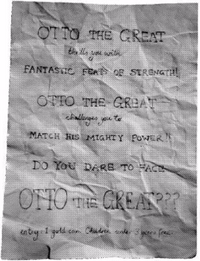 OTTO THE GREAT
thrills you with
FANTASTIC FEATS OF STRENGTH!
OTTO THE GREAT
challenges you to
MATCH HIS MIGHTY POWER!!
DO YOU DARE TO FACE
OTTO THE GREAT???
entry: 1 gold coin. Children under 5 years free.